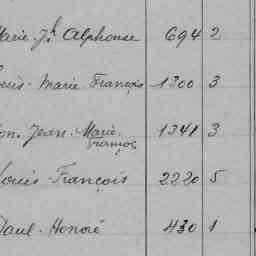 Marie Jh Alphonse 694 2
Louis-Marie-François 1300 3
Jean-Marie- 1341 3
François
Louis-François 2220 5
Paul-Honoré 430 1